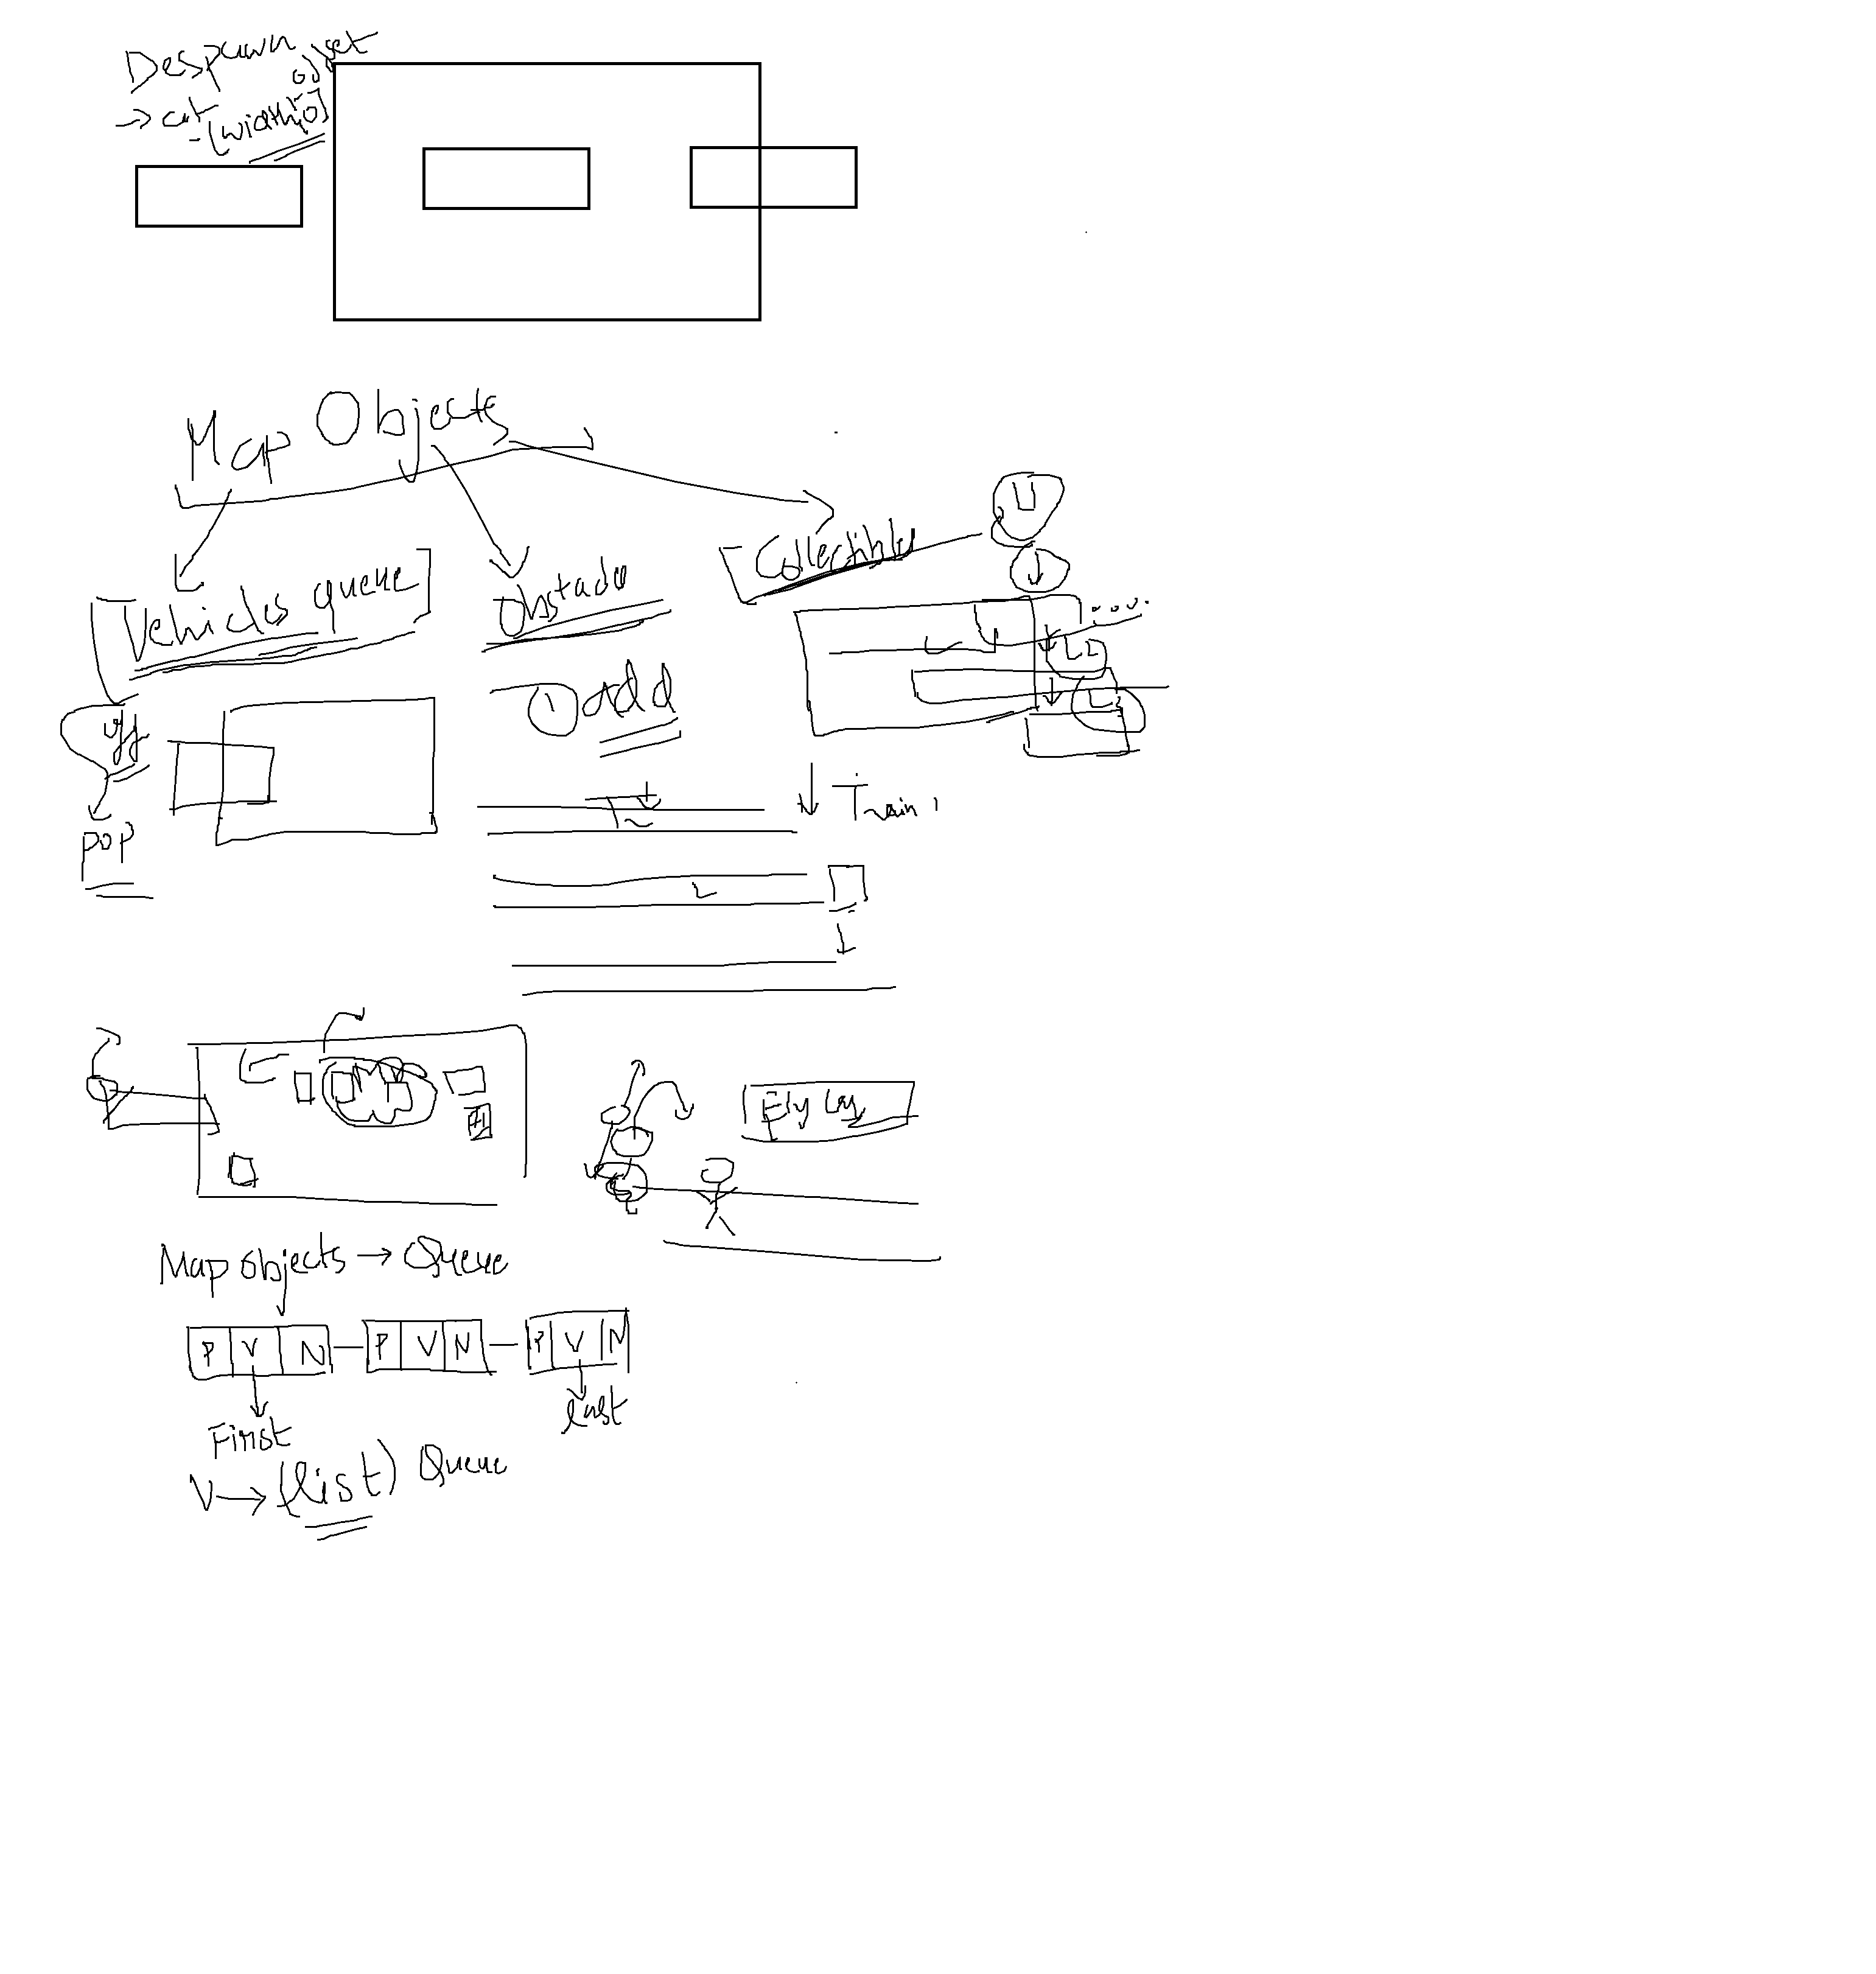 Despawn object
→ at
-(width, 0)
Map Objects
[Vehicles queue]
Obstacle
[Collectible
① add
L2
L3
pop
↓ Train 1
Map objects → Queue
P V N — P V N — P V N
First
last
V → (list) Queue